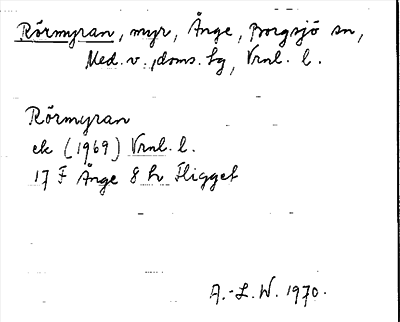 Rörmyran, myr, Ånge, Borgsjö sn,
Med. v., doms. hg, Vrnl. l.
Rörmyran
ek (1969) Vrnl. l.
17 F Ånge 8 h Fligget
A.-L. W. 1970.